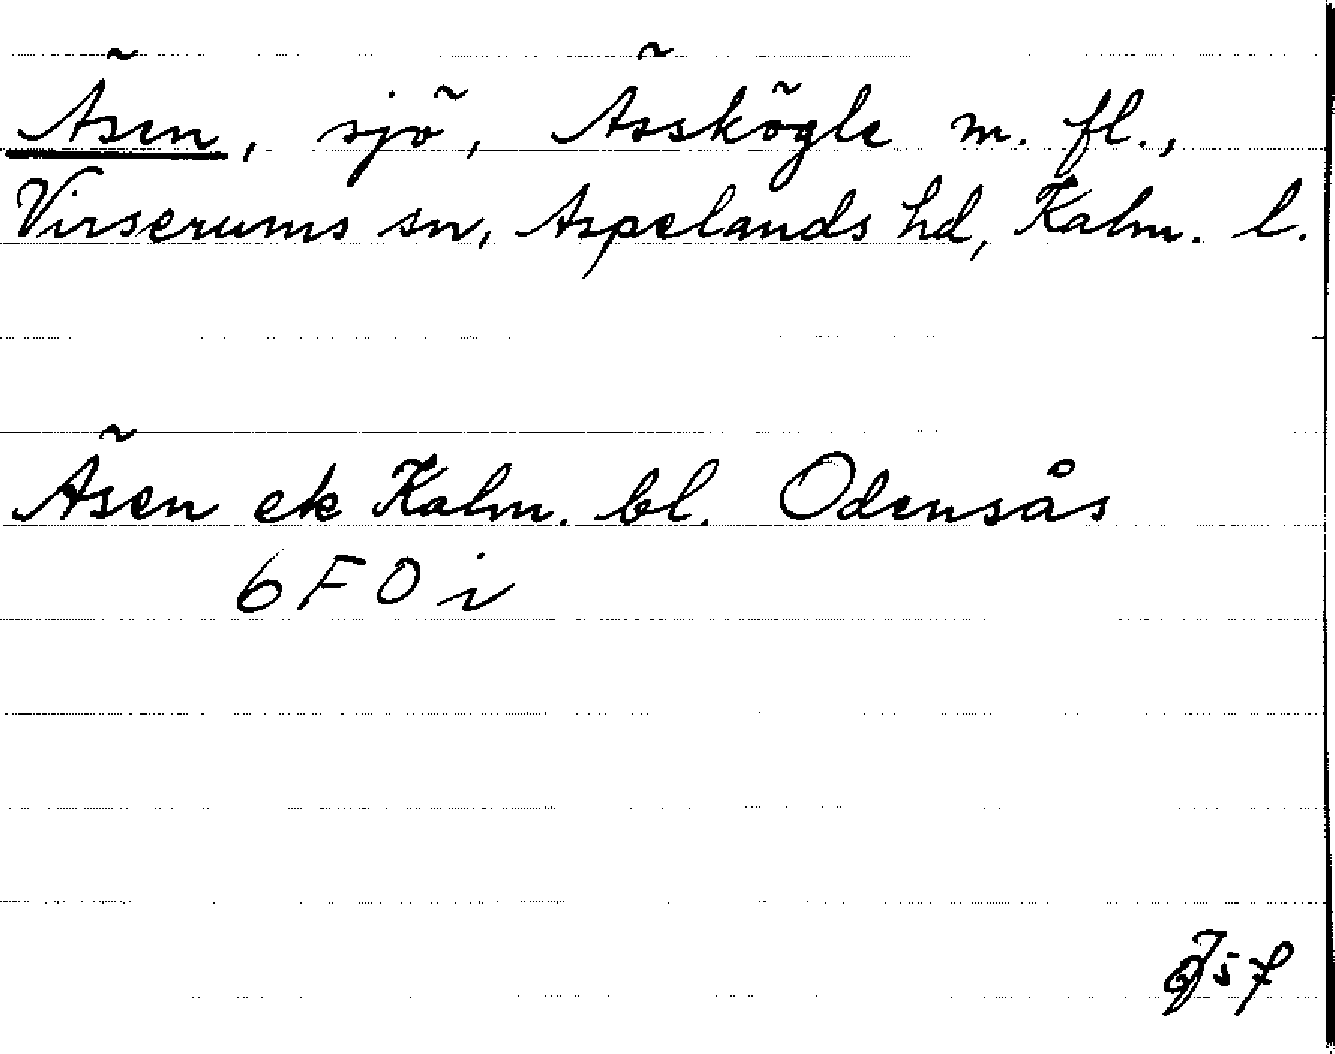 Äsen, sjö, Ässkögle m. fl.,
Virserums sn, Aspelands hd, Kalm. l.
Äsen ek Kalm. bl. Odensås
6 F 0 i